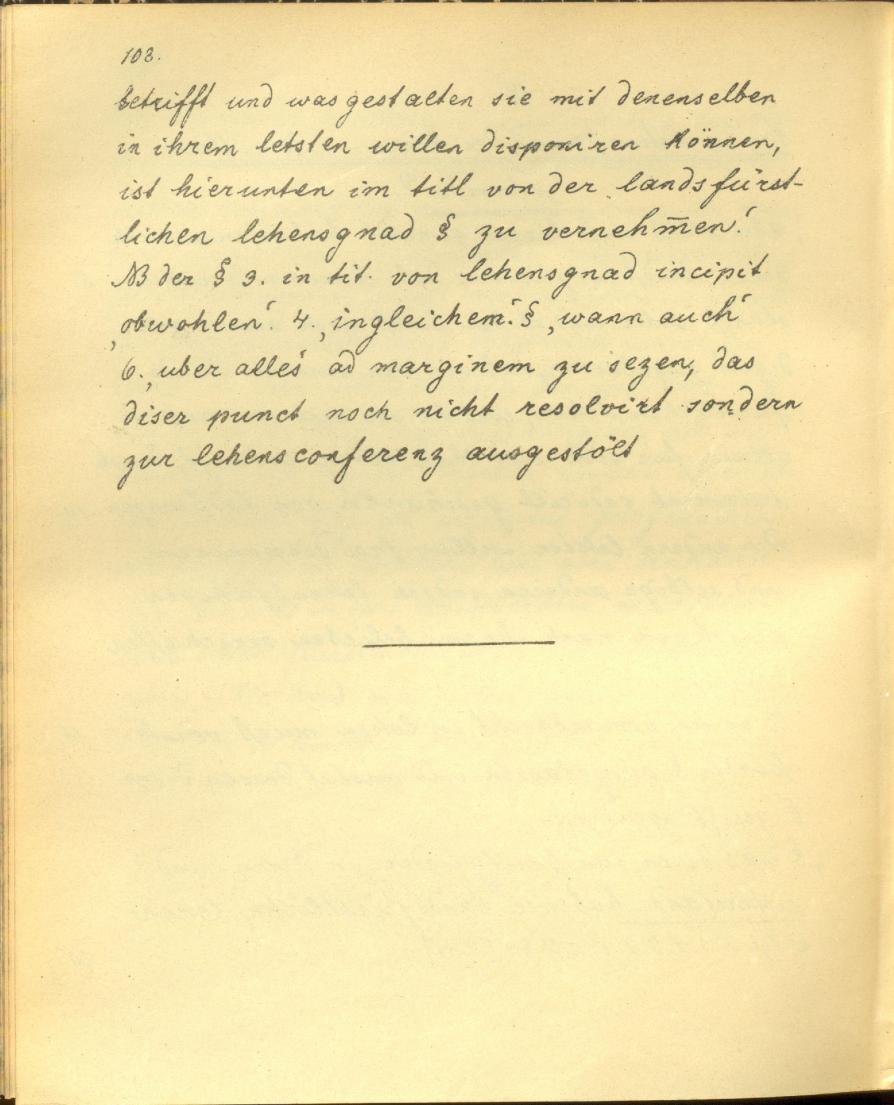 108.
betrifft und was gestalten sie mit denenselben
in ihrem letsten willen disponiren können,
ist hierunten im titl von der landsfürst-
lichen lehensgnad § zu vernehm̅en.'
NB der § 3. in tit. von lehensgnad incipit
‚obwohlen'. 4. ‚ingleichem'. § ‚wann auch'
6. ‚uber alles' ad marginem zu sezen, das
diser punct noch nicht resolvirt sondern
zur lehensconferenz ausgestölt